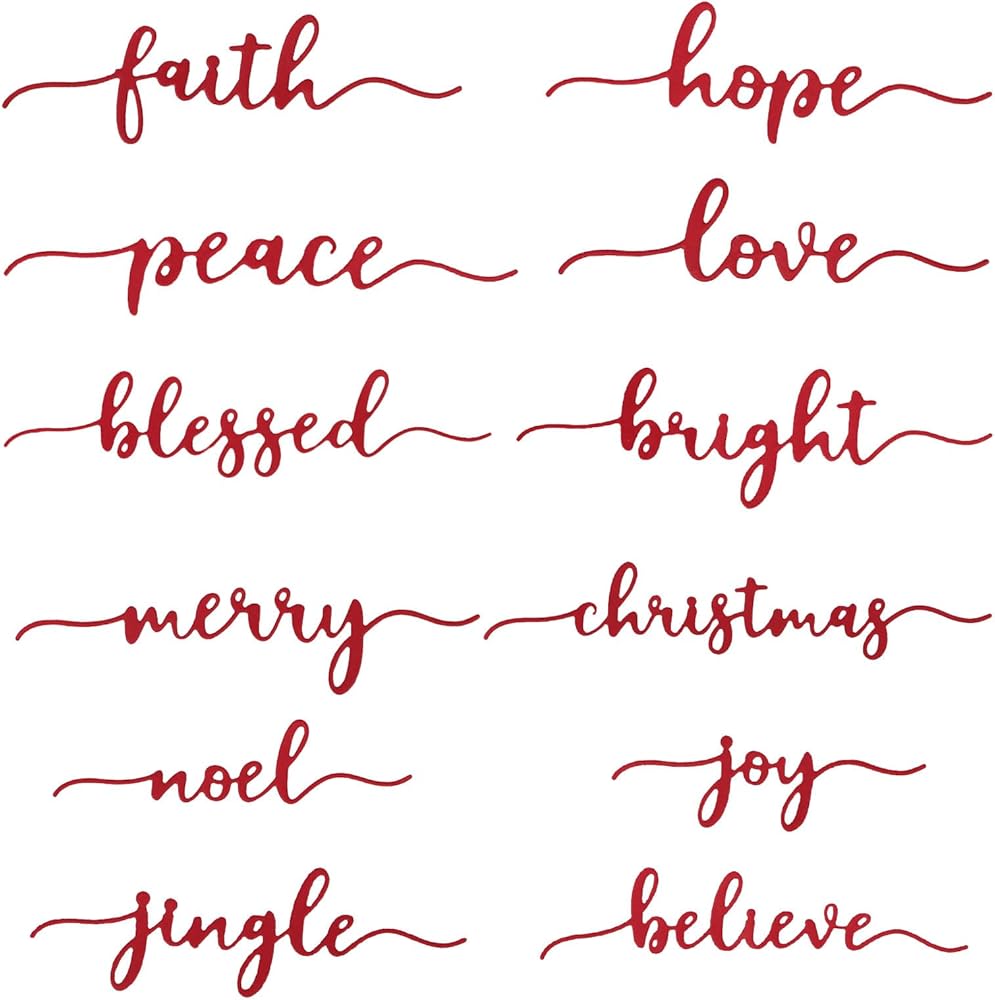 faith hope
peace love
blessed bright
merry christmas
noel joy
jingle believe